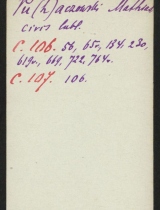 Pu(h)aczowski Mathias
civis lubl.
C. 106. 58, 650, 184, 230,
619v, 669, 722, 764v.
C. 107. 106.